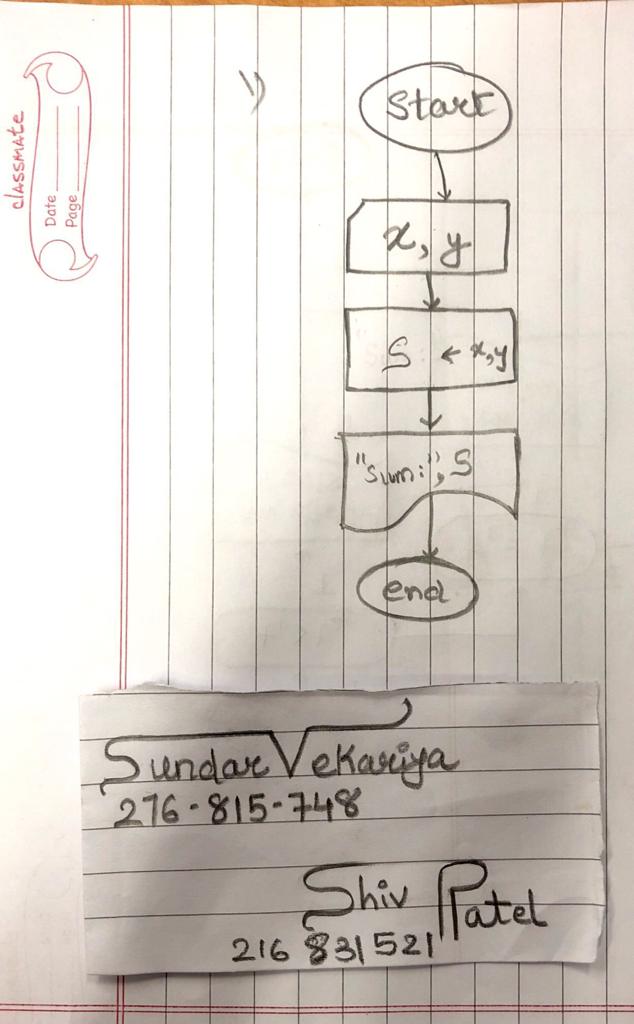 classmate
Date
Page
1)
Start
x, y
S ← x,y
"Sum:", S
end
Sundar Vekariya
276-815-748
Shiv Patel
216 831521